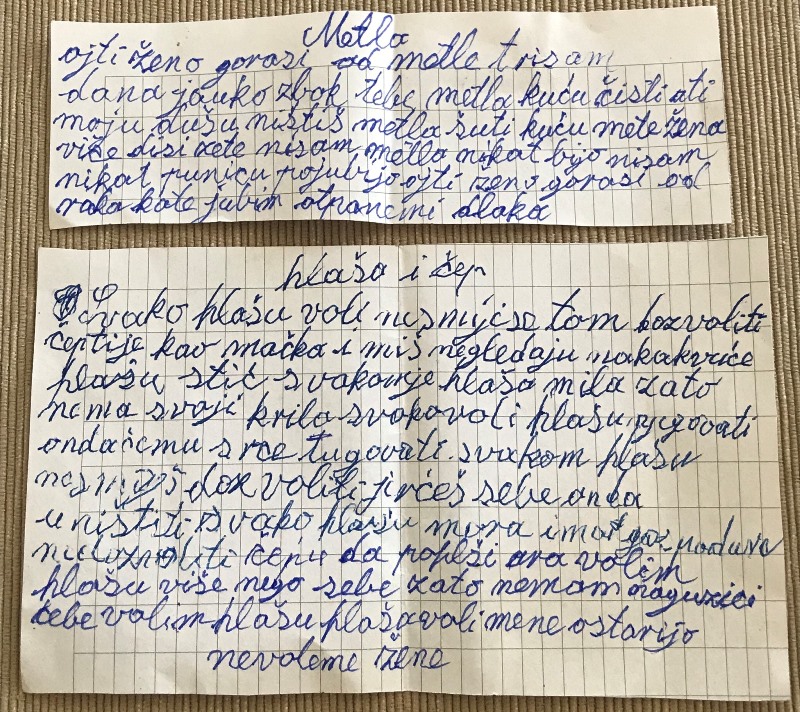 Metla
ojti ženo gorasi od metle trisam
dana jauko zbok tebe metla kuću čisti ati
moju dušu ništiš metla šuti kuću mete žena
više disi nisam metla nikat bijo nisam
nikat punicu pojubijo ojti ženo gorasi od
raka kate jubim otpanemi dlaka
hlaša i čep
Svako hlašu voli nesmijše tom bozvoliti
čeptije kao mačka i miš negledaj u kakviće
hlašu stić svakomje hlaša mila zato
nema svoji krila svako voli hlašu njegovati
ondačemu srce tugovati. svakom hlašu
nesmiješ dozvoliti jerćeš sebe onda
uništiti svako hlašu mora imat gospodara
nedozvoliti čepu da popiši ara volim
hlašu više nego sebe zato nemam naguzici
tebe volim hlašu hlaša voli mene ostarijo
nevoleme žene